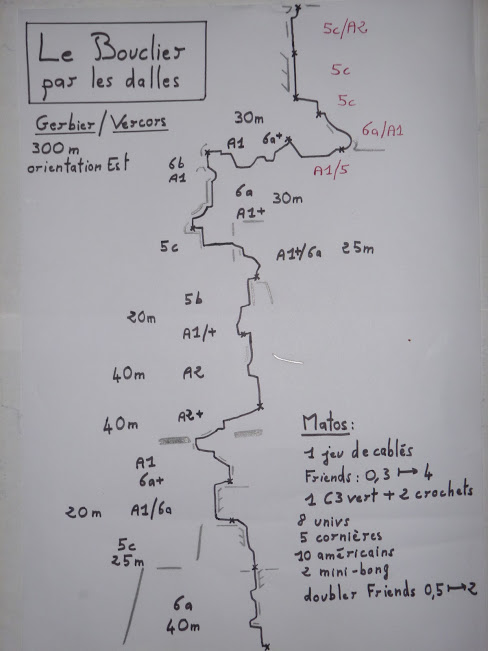 Le Bouclier
par les dalles
Gerbier/Vercors
300 m
orientation Est
5c/A2
5c
5c
6a/A1
A1/5
30m
A1
6a+
6b
A1
6a
A1+
30m
5c
A1+/6a
25m
5b
20m
A1/+
40m
A2
40m
A2+
A1
6a+
20m
A1/6a
5c
25m
6a
40m
Matos:
1 jeu de cablés
Friends: 0,3 ↦ 4
1 C3 vert + 2 crochets
8 univs
5 cornières
10 américains
2 mini-bong
doubler Friends 0,5 ↦ 2